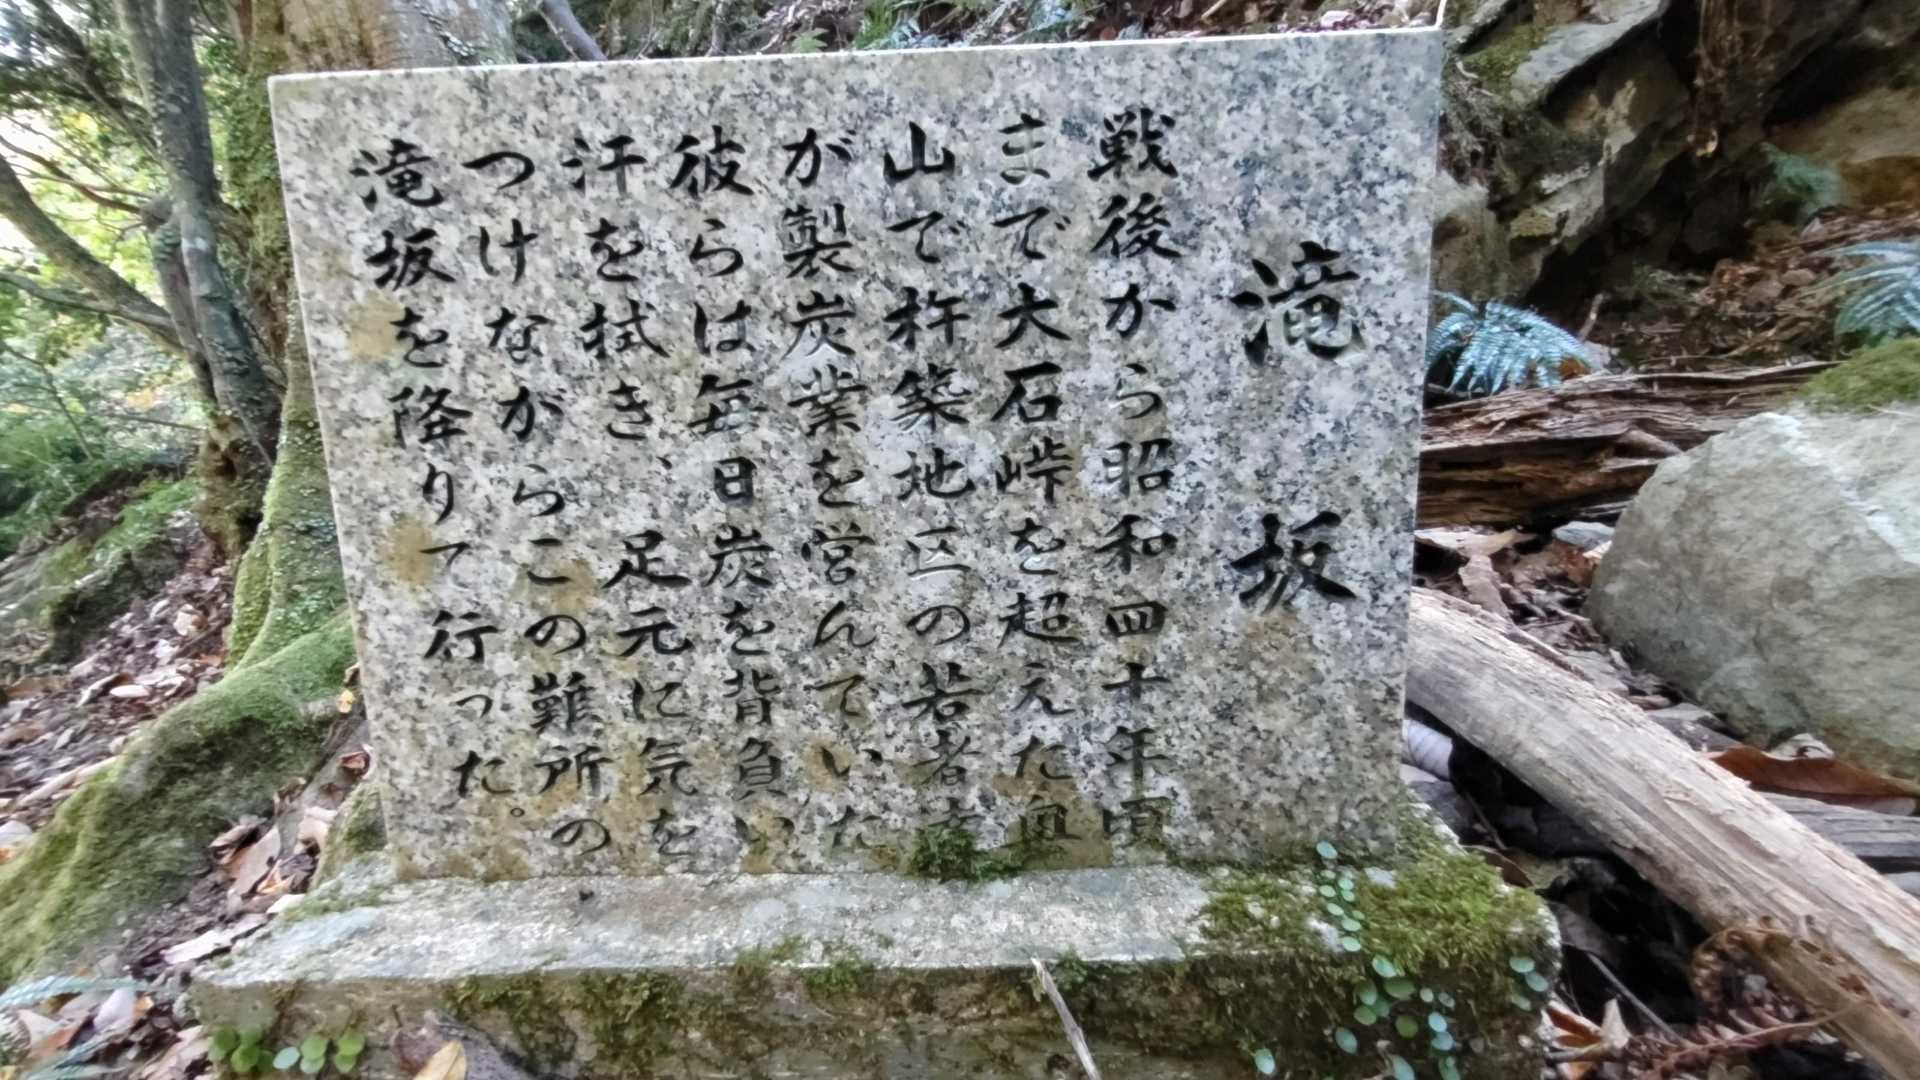 滝坂
戦後から昭和四十年頃
まで大石峠を超えた奥
山で杵築地区の若者達
が製炭業を営んでいた
彼らは毎日炭を背負い
汗を拭き、足元に気を
つけながらこの難所の
滝坂を降りて行った。